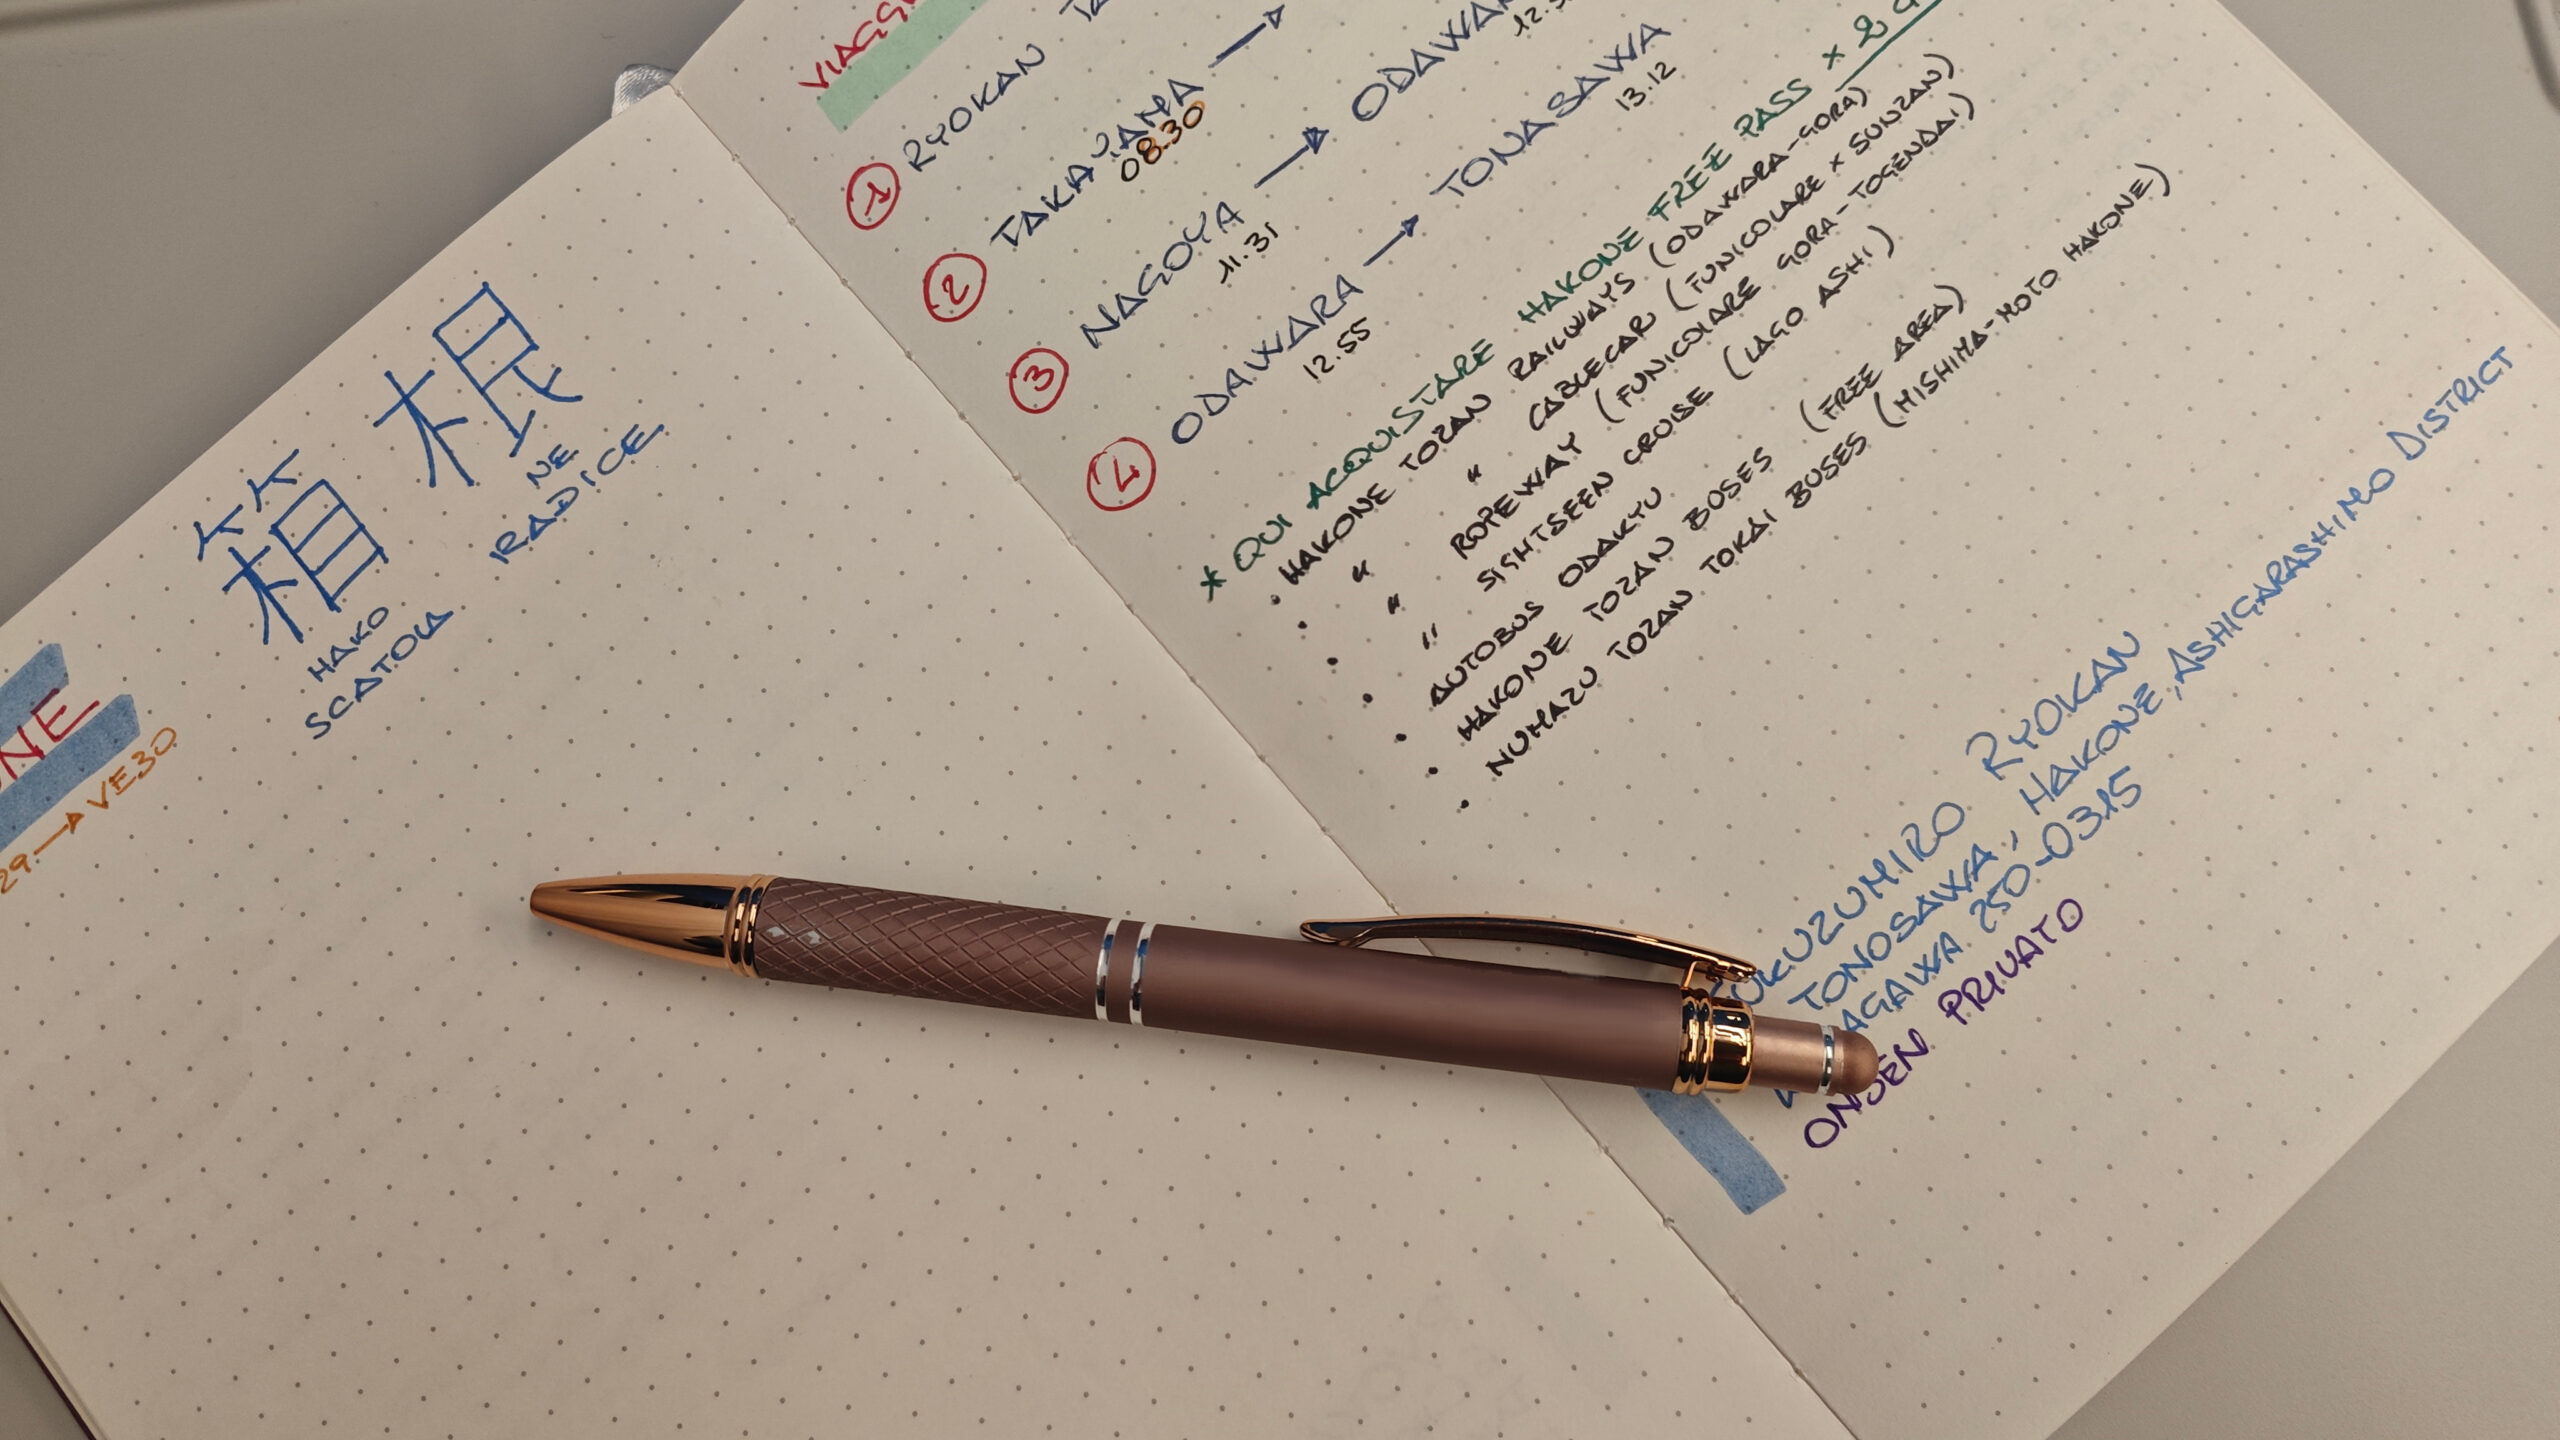 箱根
HAKO NE
SCATOLA RADICE
29 → VE30
① RYOKAN
② TAKAYAMA →
08.30
③ NAGOYA → ODAWAR
11.31
④ ODAWARA → TONASAWA
12.55 13.12
* QUI ACQUISTARE HAKONE FREE PASS × 2
• HAKONE TOZAN RAILWAYS (ODAWARA-GORA)
• " " CABLECAR (FUNICOLARE × SUNZAN)
• " ROPEWAY (FUNICOLARE GORA-TOGENDAI)
• " SIGHTSEEN CRUISE (LAGO ASHI)
• AUTOBUS ODAKYU
• HAKONE TOZAN BUSES (FREE AREA)
• NUMAZU TOZAN TOKAI BUSES (MISHIMA-MOTO HAKONE)
RYOKAN
TONOSAWA, HAKONE, ASHIGARASHIMO DISTRICT
250-0315
ONSEN PRIVATO